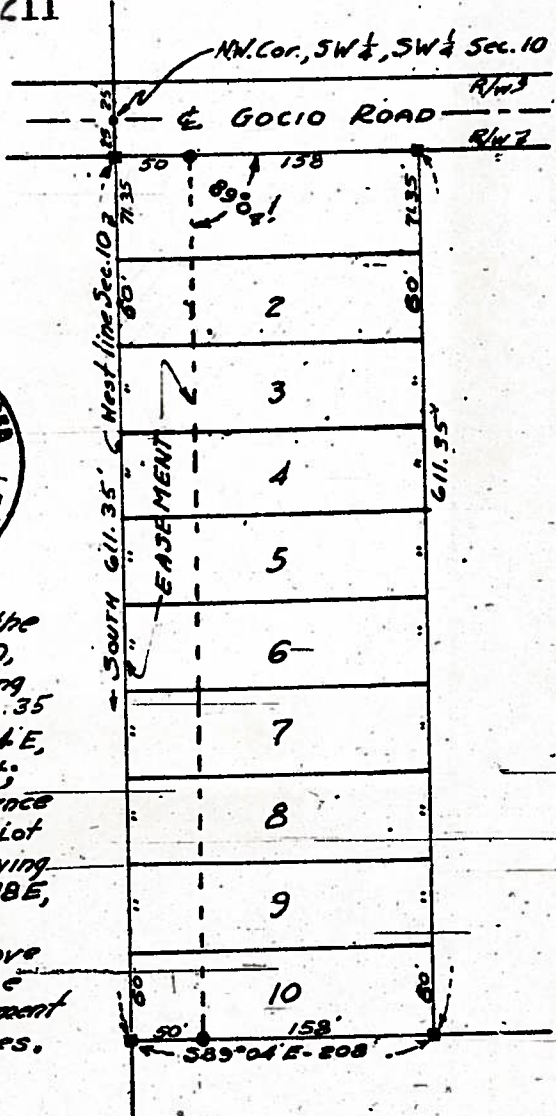 211
N.W. Cor., SW ¼, SW ¼ Sec. 10
R/W
25' 25'
℄ GOCIO ROAD
R/W
50 158
89° 04'
71.35 71.35
West line Sec. 10
60' 2 60'
" 3 "
EASEMENT
" 4 "
611.35'
SOUTH 611.35'
" 5 "
" 6 "
" 7 "
" 8 "
" 9 "
60' 10 60'
50' 158'
S89°04'E-208'
the
.35
E,
ence
Lot
ying
8E,
ove
e
ment
es.